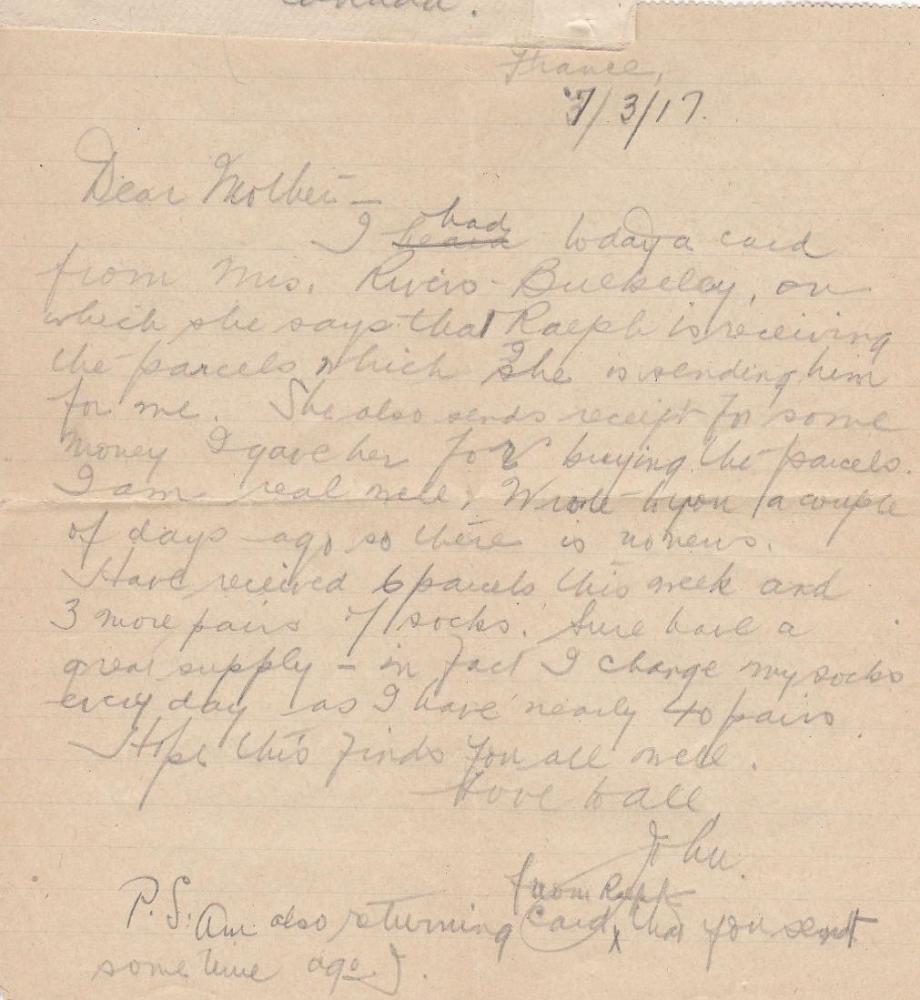 Canada.
France,
7/3/17.
Dear Mother –
had
I heard today a card
from Mrs. Rivers-Bulkeley, on
which she says that Ralph is receiving
the parcels which she is sending him
for me. She also sends receipt for some
money I gave her for buying the parcels.
I am real well. Wrote to you a couple
of days ago so there is no news.
Have received 6 parcels this week and
3 more pairs of socks. Sure have a
great supply – in fact I change my socks
every day as I have nearly 40 pairs
Hope this finds you all well.
Love to all
John.
from Ralph
P.S. Am also returning card x that you sent
some time ago J.